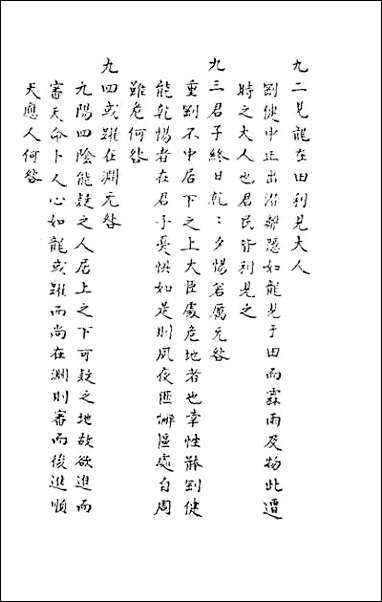 九二見龍在田利見大人
剛健中正出潛離隱如龍見于田而霖雨及物此遭
時之大人也君民皆利見之
九三君子終日乾〻夕惕若厲无咎
重剛不中居下之上大臣處危地者也幸性體剛健
能乾惕者在君子憂懼如是則夙夜匪懈區處自周
雖危何咎
九四或躍在淵无咎
九陽四陰能疑之人居上之下可疑之地故欲進而
審天命卜人心如龍或躍而尚在淵則審而後進順
天應人何咎